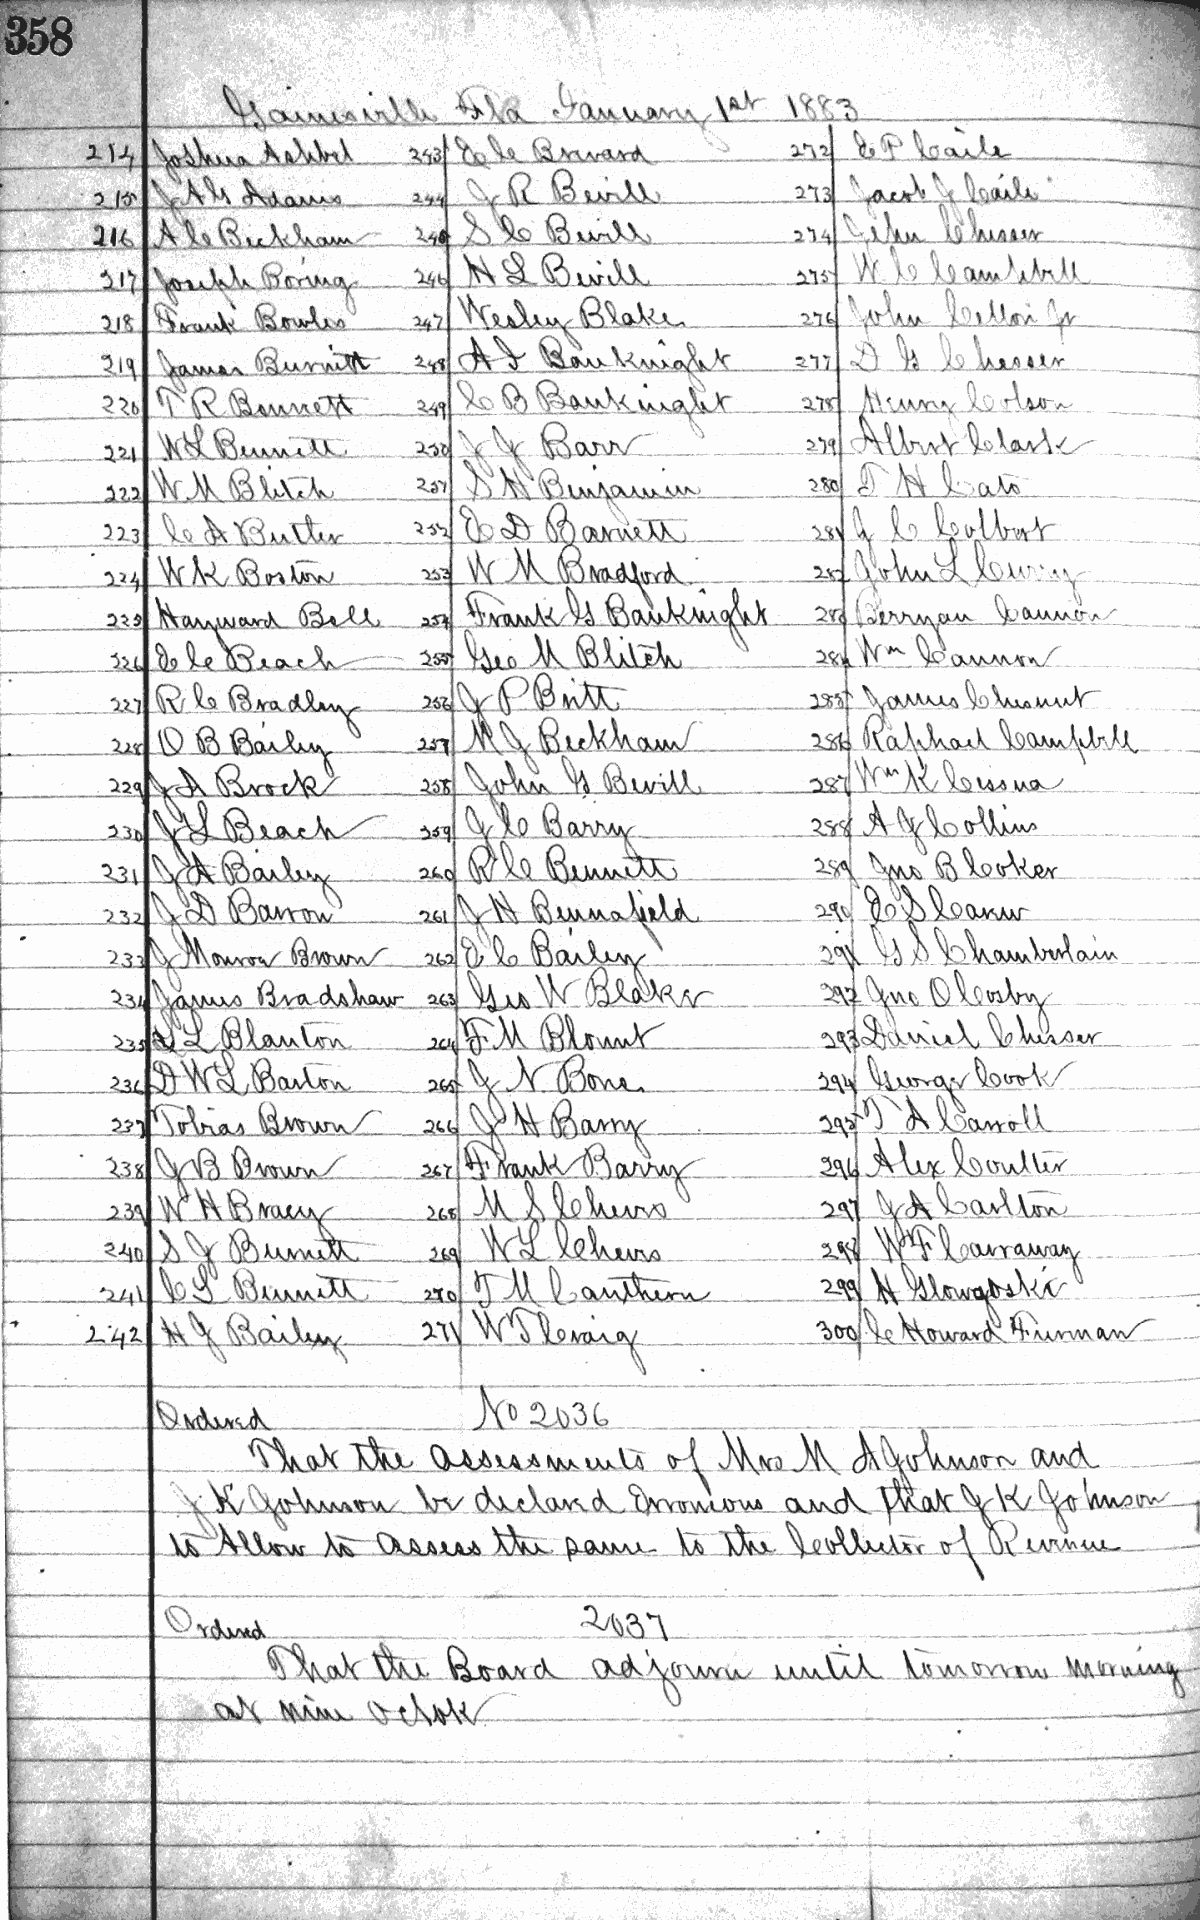 358
Gainesville Fla January 1st 1883
214 Joshua Ashbel 243 E C Brevard 272 E P Caile
215 J A G Adams 244 J R Bevill 273 Jacob J Caile
216 A C Beckham 245 S C Bevill 274 John Chesser
217 Joseph Boring 246 H L Bevill 275 W C Campbell
218 Frank Bowles 247 Wesley Blake 276 John Cellon Jr
219 James Burnitt 248 A I Bauknight 277 D G Chesser
220 T R Bennett 249 C B Bauknight 278 Henry Colson
221 W L Bennett 250 J J Barr 279 Albert Clark
222 W M Blitch 251 S H Benjamin 280 T H Cato
223 C A Butler 252 E D Barnett 281 J C Colbert
224 W K Boston 253 W M Bradford 282 John L Curry
225 Hayward Bell 254 Frank G Bauknight 283 Berryan Cannon
226 E C Beach 255 Geo M Blitch 284 Wm Cannon
227 R C Bradley 256 J P Britt 285 James Chesnut
228 O B Bailey 257 M J Beckham 286 Raphael Campbell
229 J A Brock 258 John G Bevill 287 Wm K Cessna
230 J L Beach 259 J C Barry 288 A J Collins
231 J A Bailey 260 R C Bennett 289 Jno B Coker
232 J D Barron 261 J H Bennafield 290 E S Carew
233 J Monroe Brown 262 E C Bailey 291 G S Chamberlain
234 James Bradshaw 263 Geo W Blaker 292 Jno O Cosby
235 L Blanton 264 F M Blount 293 Daniel Chesser
236 D W L Barton 265 J N Bone 294 George Cook
237 Tobias Brown 266 J H Barry 295 T A Carroll
238 J B Brown 267 Frank Barry 296 Alex Coulter
239 W H Bracy 268 M S Cheves 297 J A Carlton
240 S J Burnett 269 W L Cheves 298 W F Carraway
241 C L Bennett 270 T M Cauthern 299 H Glowgoski
242 H J Bailey 271 W T Craig 300 C Howard Furman
Ordered No 2036
That the assessments of Mrs M A Johnson and
J K Johnson be declared Erronious and that J K Johnson
to Allow to assess the same to the Collector of Revenue
Ordered 2037
That the Board adjourn until tomorrow morning
at nine oclok